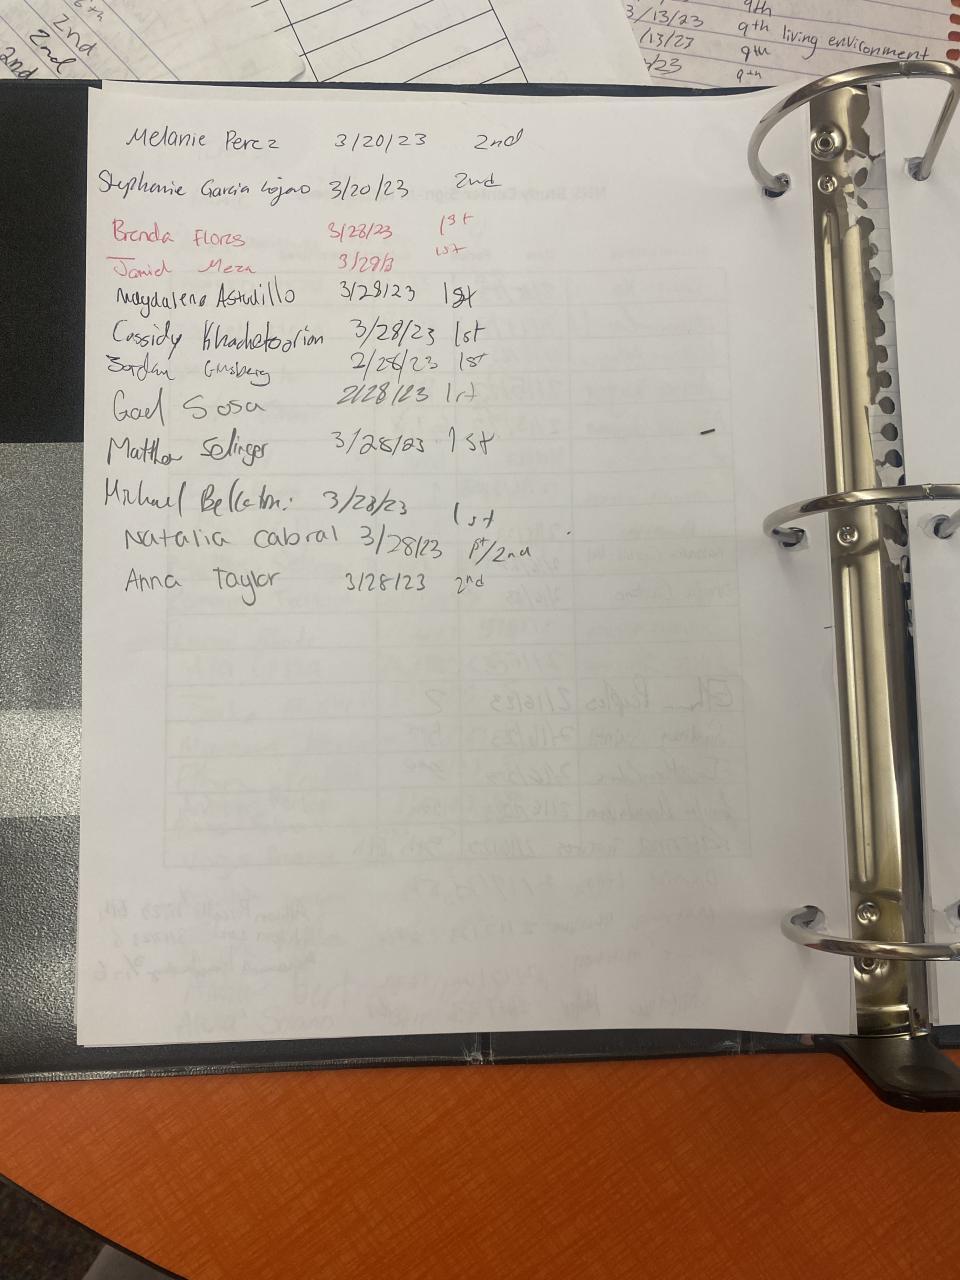 6th
2nd
2nd
2nd
9th
3/13/23 9th living environment
/13/23 9th
/23 9th
Melanie Perez 3/20/23 2nd
Stephanie Garcia Lojano 3/20/23 2nd
Brenda Flores 3/28/23 1st
Jamid Meza 3/28/3 1st
Magdalena Astudillo 3/28/23 1st
Cassidy 3/28/23 1st
Jordan Ginsberg 2/28/23 1st
Gael Sosa 2/28/23 1st
Matthew Selinger 3/28/23 1st
Michael 3/28/23 1st
Natalia Cabral 3/28/23 1st/2nd
Anna Taylor 3/28/23 2nd